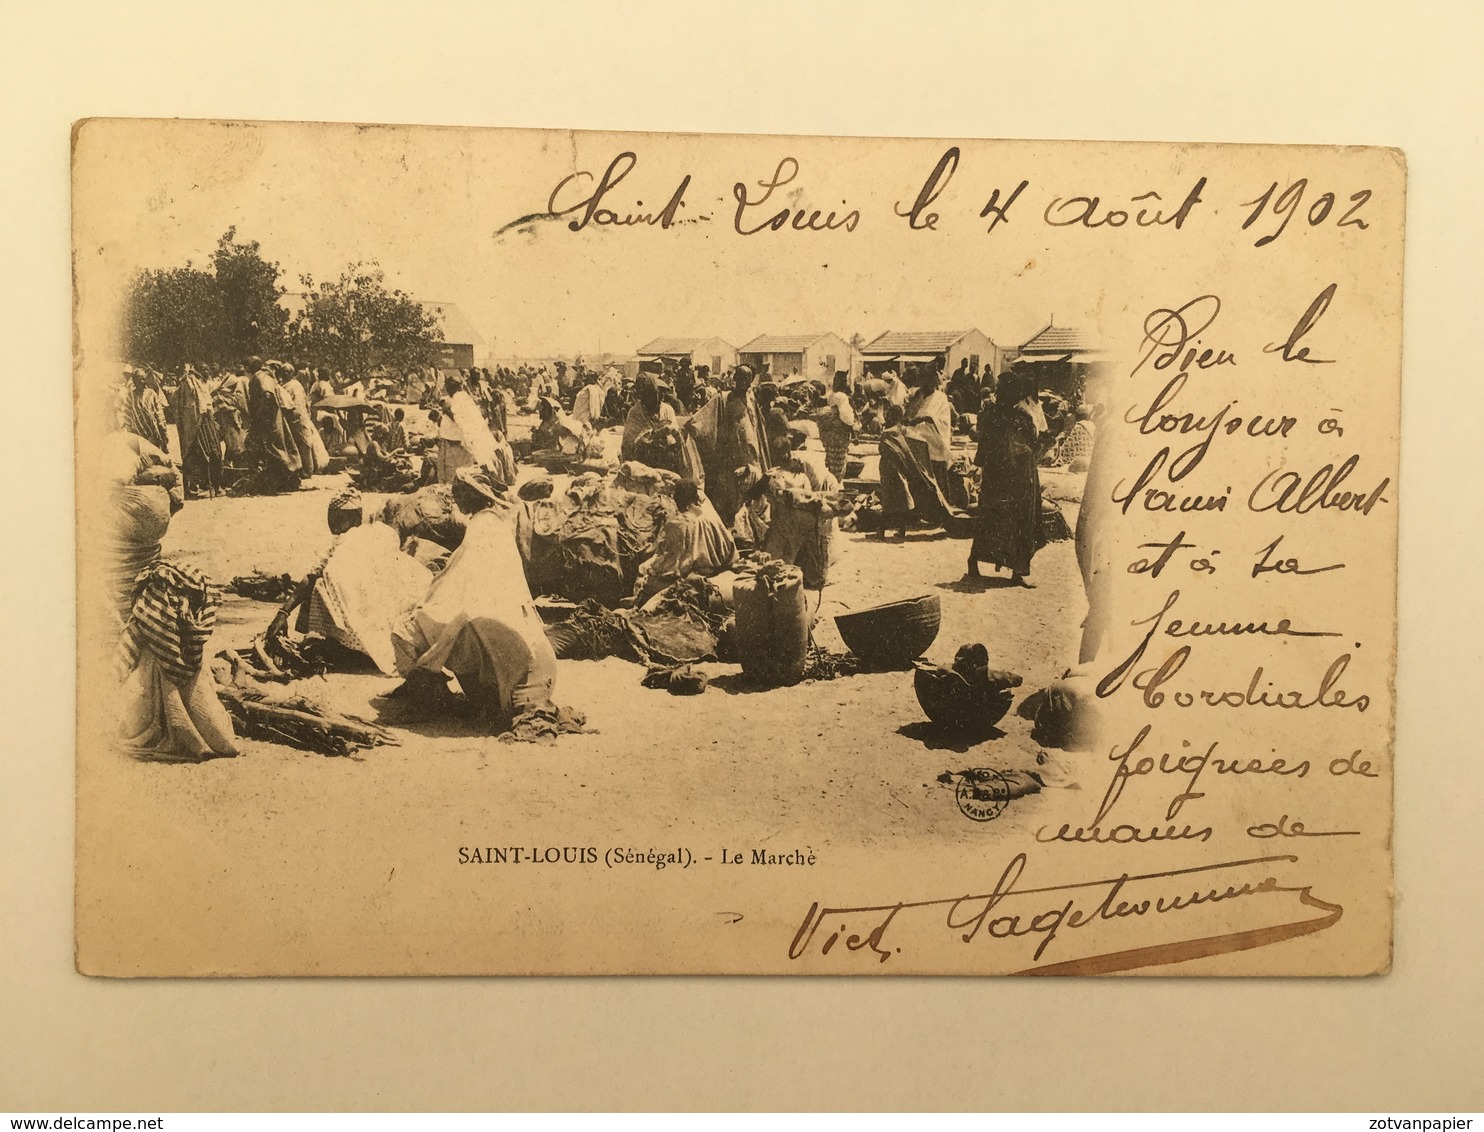 Saint-Louis le 4 Août 1902
Bien le
bonjour à
l'ami Albert
et à sa
femme.
Cordiales
poignées de
mains de
Vict. Sagehomme
SAINT-LOUIS (Sénégal). - Le Marché
NANCY
delcampe.net
zotvanpapier